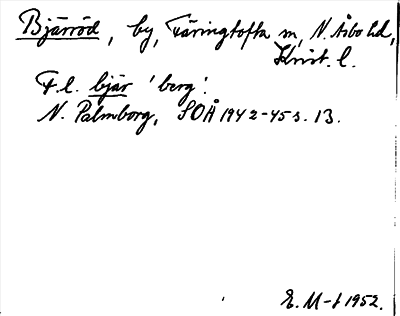 Bjärröd, by, Färingtofta sn, N. Åsbo hd,
Krist. l.
F. l. bjär 'berg'.
N. Palmborg, SOÅ 1942-45 s. 13.
E. M-t 1952.